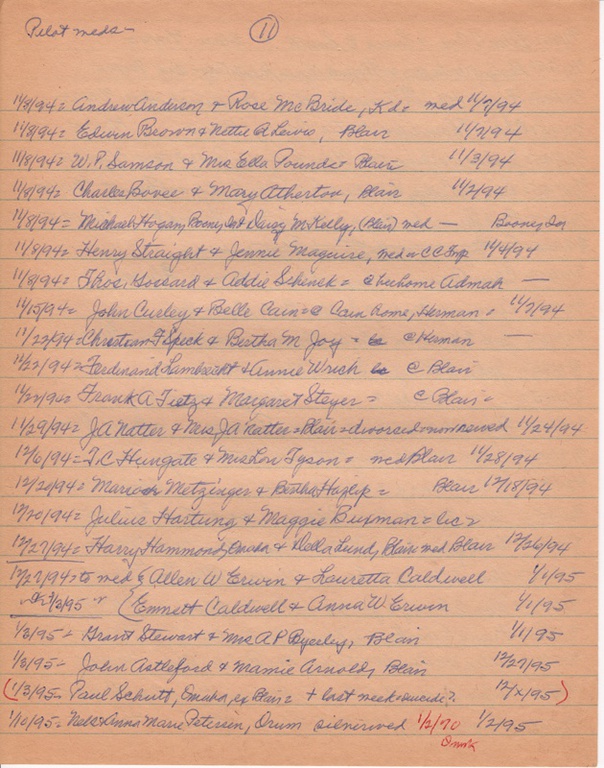 Pilot meds — 11
11/8/94 = Andrew Anderson & Rose McBride, Kd = med 11/7/94
11/8/94 = Edwin Brown & Nettie A Lewis, Blair 11/7/94
11/8/94 = W.P. Samson & Mrs Ella Pounds = Blair 11/3/94
11/8/94 = Charles Bovee & Mary Atherton, Blair 11/2/94
11/8/94 = Michael Hogan, Rooney & Daisy M Kelly, (Blair) med —
11/8/94 = Henry Straight & Jennie Maguire, med in CC Twp 11/4/94
11/8/94 = Thos. Gossard & Addie Schenck = @ her home Admah —
11/15/94 = John Curley & Belle Cain = @ Cain home, Herman = 11/7/94
11/22/94 = Christian F Speck & Bertha M Joy = @ Herman —
11/22/94 = Ferdinand Lambrecht & Annie Wrich @ Blair
11/22/94 = Frank A Tietz & Margaret Steyer = @ Blair =
11/29/94 = JA Natter & Mrs JA Natter = Blair = divorced = 11/24/94
12/6/94 = T.C Hungate & Mrs Lou Tyson = med Blair 11/28/94
12/20/94 = Marion Metzinger & Bertha Hazlip = Blair 12/18/94
12/20/94 = Julius Hartung & Maggie Buxman = lic =
12/27/94 = Harry Hammond, Omaha & Della Lund, Blair med Blair 12/26/94
12/27/94 = to med { Allen W Erwin & Lauretta Caldwell 1/1/95
1/3/95 { Emmett Caldwell & Anna W Erwin 1/1/95
1/3/95 = Grant Stewart & Mrs A P Byerley, Blair 1/1/95
1/3/95 = John Astleford & Mamie Arnold, Blair 12/27/95
(1/3/95 = Paul Schutt, Omaha, ex Blair = + last week = suicide? 12/x/95)
1/10/95 = Nels & Anna Marie Petersen, Orum 1/2/70 1/2/95